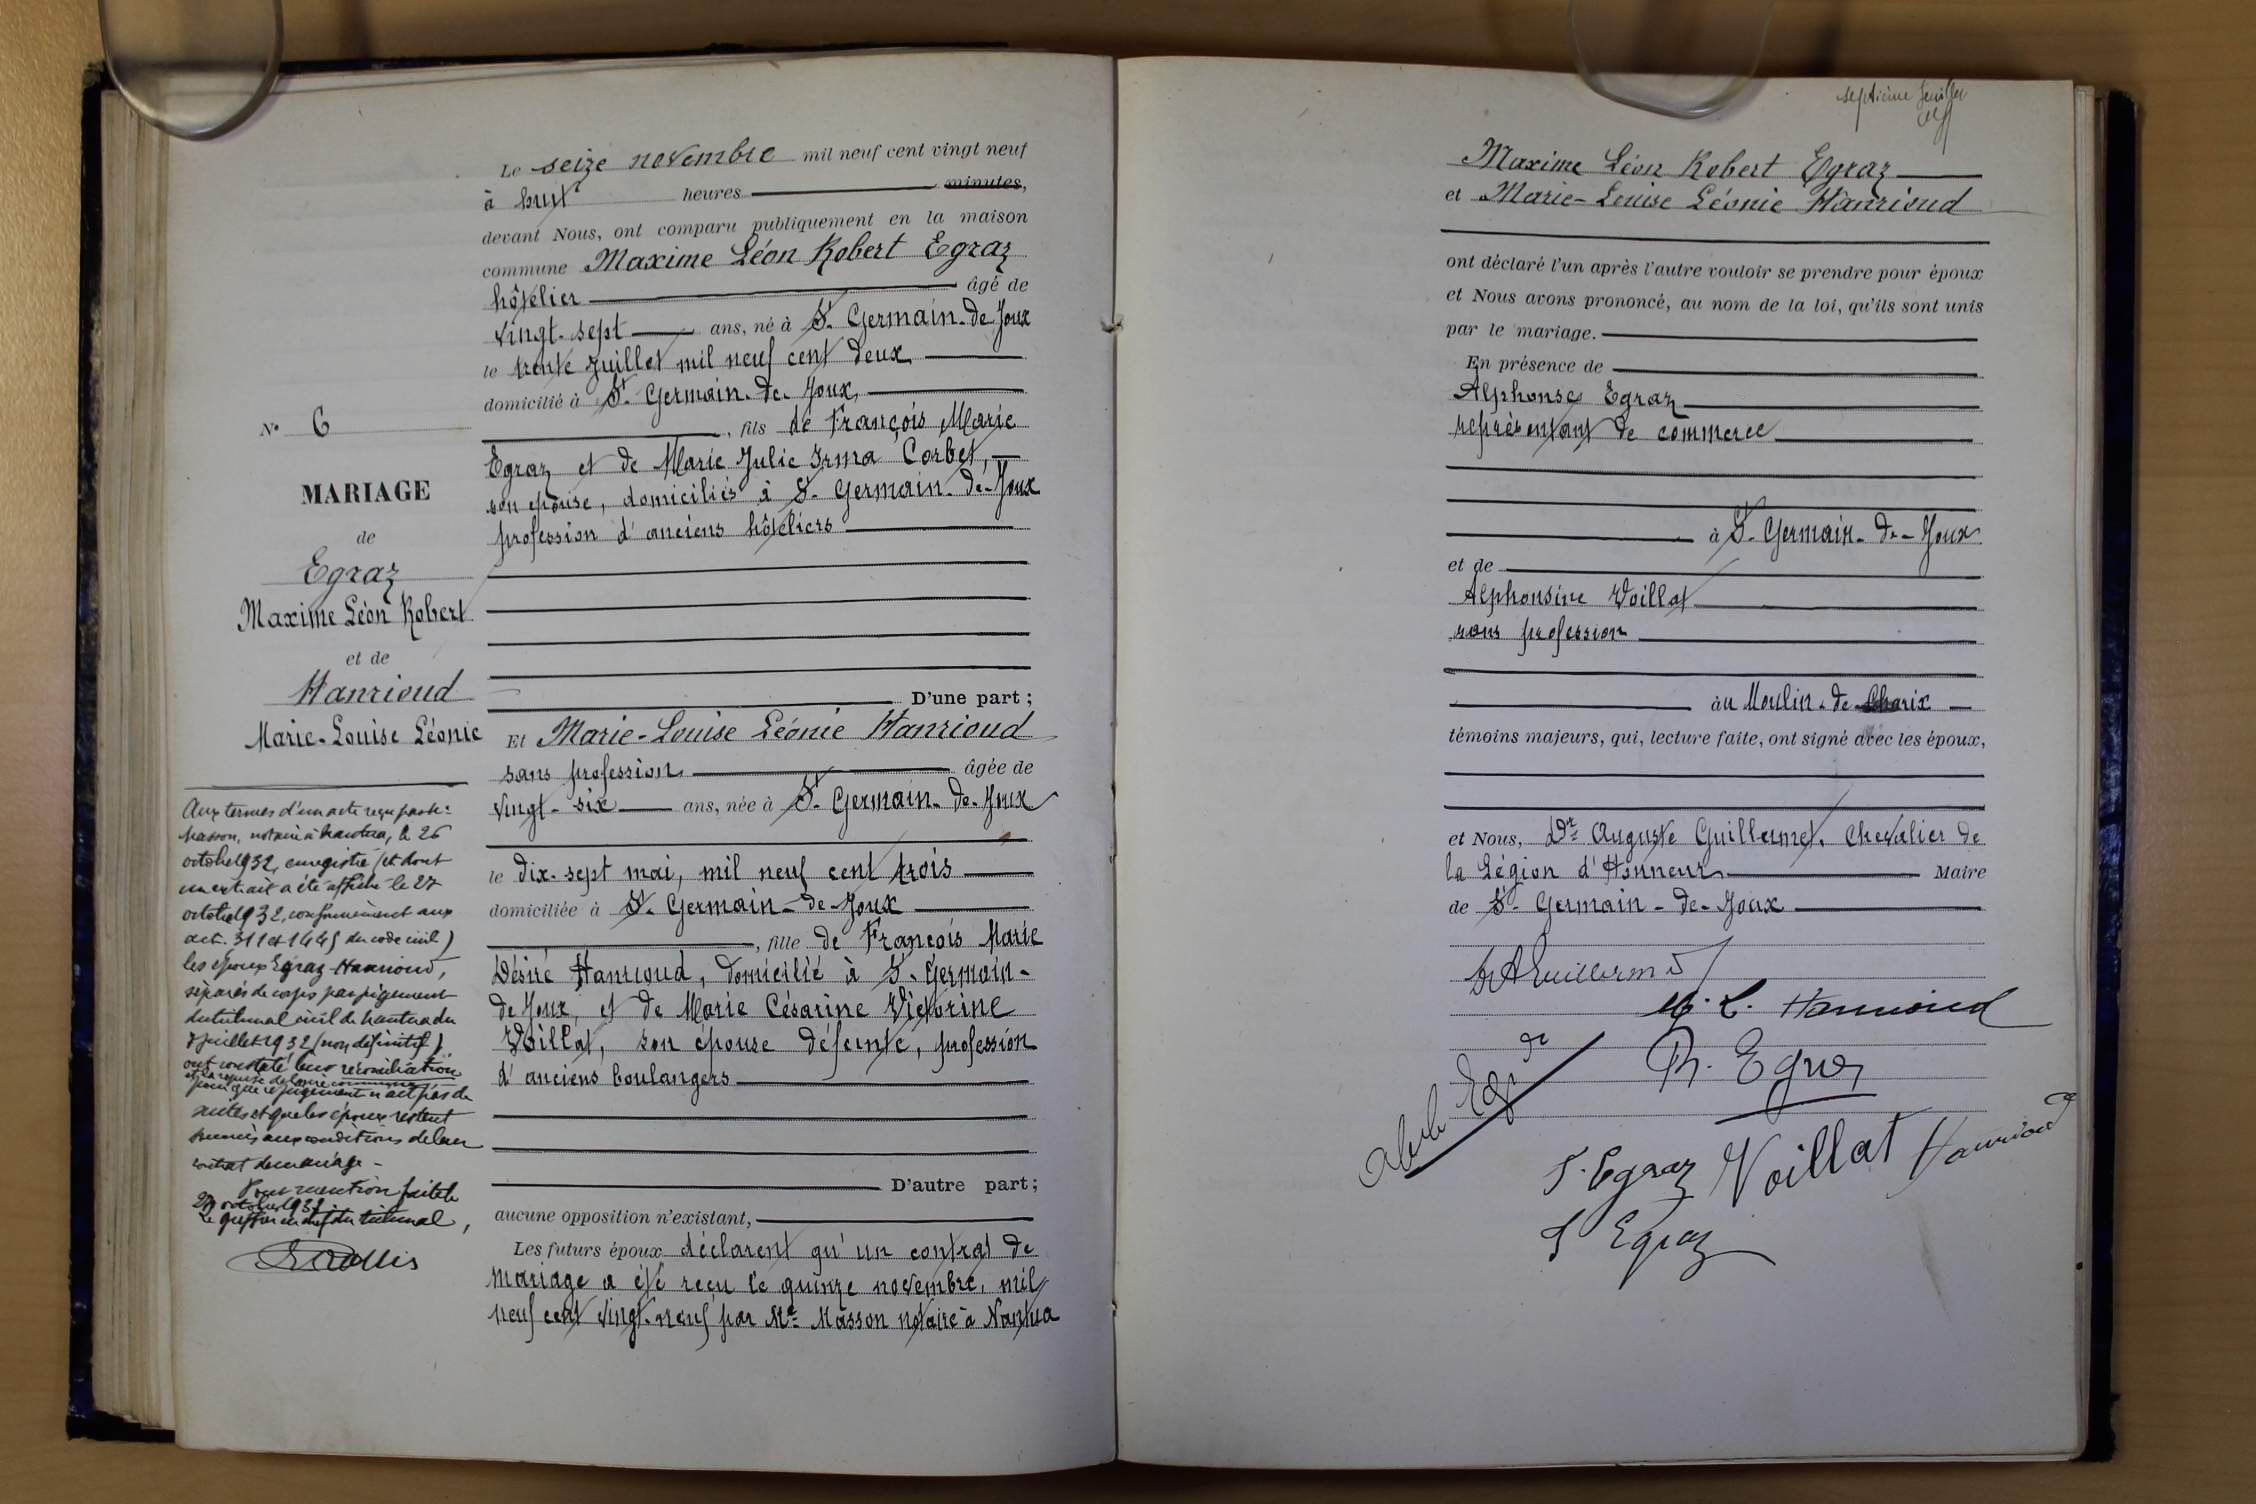 Nº 6
MARIAGE
de
Egraz
Maxime Léon Robert
et de
Hanrioud
Marie-Louise Léonie
Aux termes d'un acte reçu par Me
Masson, notaire à Nantua, le 26
octobre 1932, enregistré (et dont
un extrait a été affiché le 27
octobre 1932, conformément aux
art. 311 et 1445 du code civil)
les époux Egraz-Hanrioud,
séparés de corps par jugement
du tribunal civil de Nantua du
8 juillet 1932 (non définitif)
ont constaté leur réconciliation
et la reprise de la vie commune
pour que ce jugement n'ait pas de
suites et que les époux restent
soumis aux conditions de leur
contrat de mariage -
Pour mention faite le
29 octobre 1932
Le greffier en chef du tribunal,
Le seize novembre mil neuf cent vingt neuf
à huit heures minutes,
devant Nous, ont comparu publiquement en la maison
commune Maxime Léon Robert Egraz
hôtelier âgé de
vingt-sept ans, né à St-Germain-de Joux
le trente juillet mil neuf cent deux
domicilié à St-Germain-de-Joux,
, fils de François Marie
Egraz et de Marie Julie Irma Corbet,
son épouse, domiciliés à St-Germain-de-Joux
profession d'anciens hôteliers
D'une part ;
Et Marie-Louise Léonie Hanrioud
sans profession âgée de
vingt-six ans, née à St-Germain-de-Joux
le dix-sept mai, mil neuf cent trois
domiciliée à St-Germain-de-Joux
, fille de François Marie
Désiré Hanrioud, domicilié à St-Germain-
de Joux, et de Marie Césarine Victorine
Voillat, son épouse défunte, profession
d'anciens boulangers
D'autre part ;
aucune opposition n'existant,
Les futurs époux déclarent qu'un contrat de
mariage a été reçu le quinze novembre, mil
neuf cent vingt-neuf par Me Masson notaire à Nantua
septième feuillet
Maxime Léon Robert Egraz
et Marie-Louise Léonie Hanrioud
ont déclaré l'un après l'autre vouloir se prendre pour époux
et Nous avons prononcé, au nom de la loi, qu'ils sont unis
par le mariage.
En présence de
Alphonse Egraz
représentant de commerce
à St-Germain-de-Joux
et de
Alphonsine Voillat
sans profession
au Moulin-de-Charix
témoins majeurs, qui, lecture faite, ont signé avec les époux,
et Nous, Dr Auguste Guillermet, Chevalier de
la Légion d'Honneur Maire
de St-Germain-de-Joux
Dr A Guillermet
M. L. Hanrioud
R. Egraz
Voillat Hanrioud
Egraz
Egraz